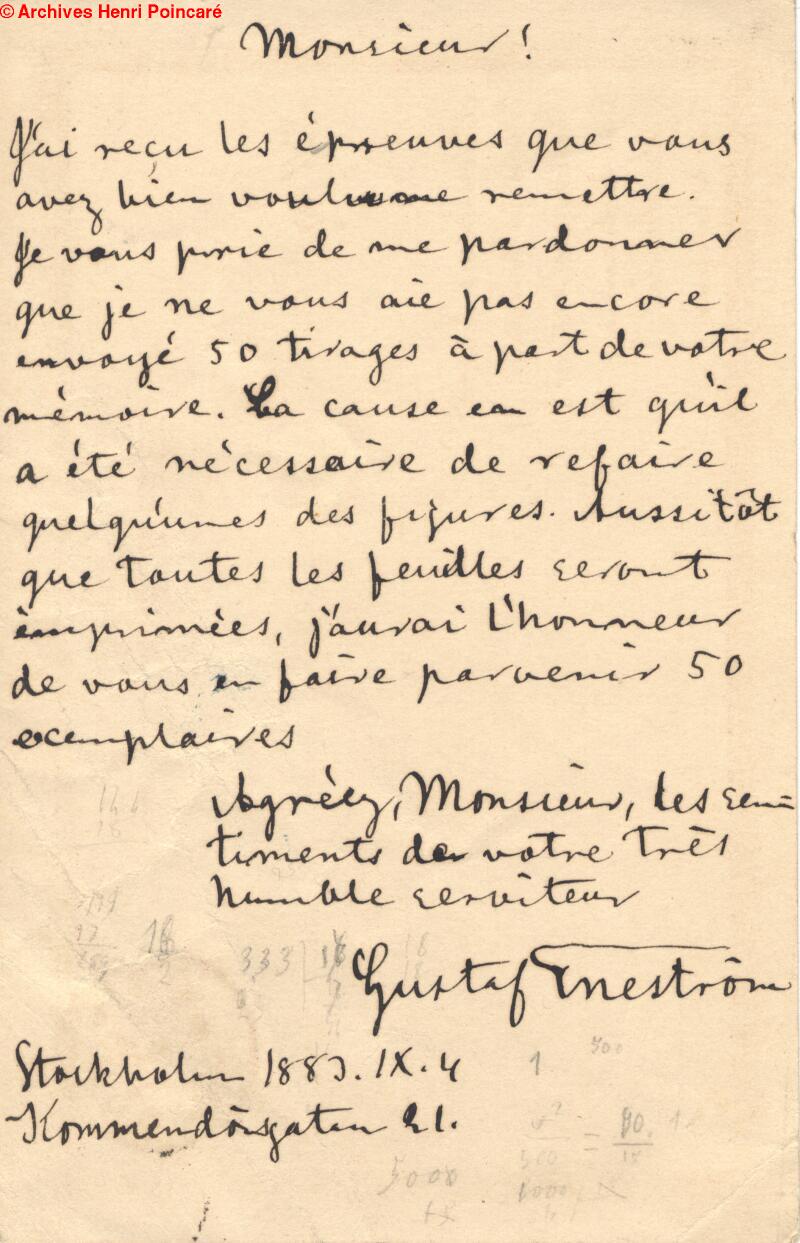 © Archives Henri Poincaré
Monsieur!
J'ai reçu les épreuves que vous
avez bien voulu me remettre.
Je vous prie de me pardonner
que je ne vous aie pas encore
envoyé 50 tirages à part de votre
mémoire. La cause en est qu'il
a été nécessaire de refaire
quelqu'unes des figures. Aussitôt
que toutes les feuilles seront
imprimées, j'aurai l'honneur
de vous en faire parvenir 50
exemplaires
Agréez, Monsieur, les sen-
timents de votre très
humble serviteur
Gustaf Eneström
Stockholm 1883. IX. 4
Kommendörsgatan 21.
333
5000